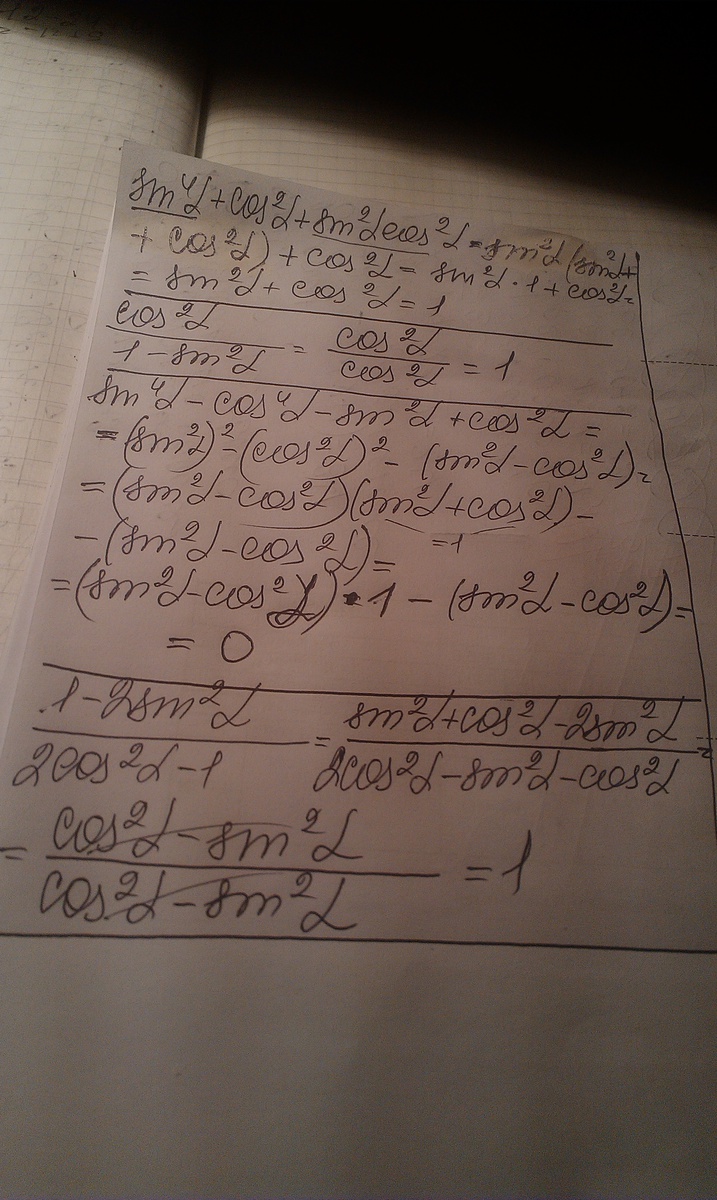 sin⁴α + cos²α + sin²α cos²α = sin²α (sin²α +
+ cos²α) + cos²α = sin²α · 1 + cos²α =
= sin²α + cos²α = 1
cos²α / (1 - sin²α) = cos²α / cos²α = 1
sin⁴α - cos⁴α - sin²α + cos²α =
= (sin²α)² - (cos²α)² - (sin²α - cos²α) =
= (sin²α - cos²α)(sin²α + cos²α) -
=1
- (sin²α - cos²α) =
= (sin²α - cos²α) · 1 - (sin²α - cos²α) =
= 0
(1 - 2sin²α) / (2cos²α - 1) = (sin²α + cos²α - 2sin²α) / (2cos²α - sin²α - cos²α) =
= (cos²α - sin²α) / (cos²α - sin²α) = 1